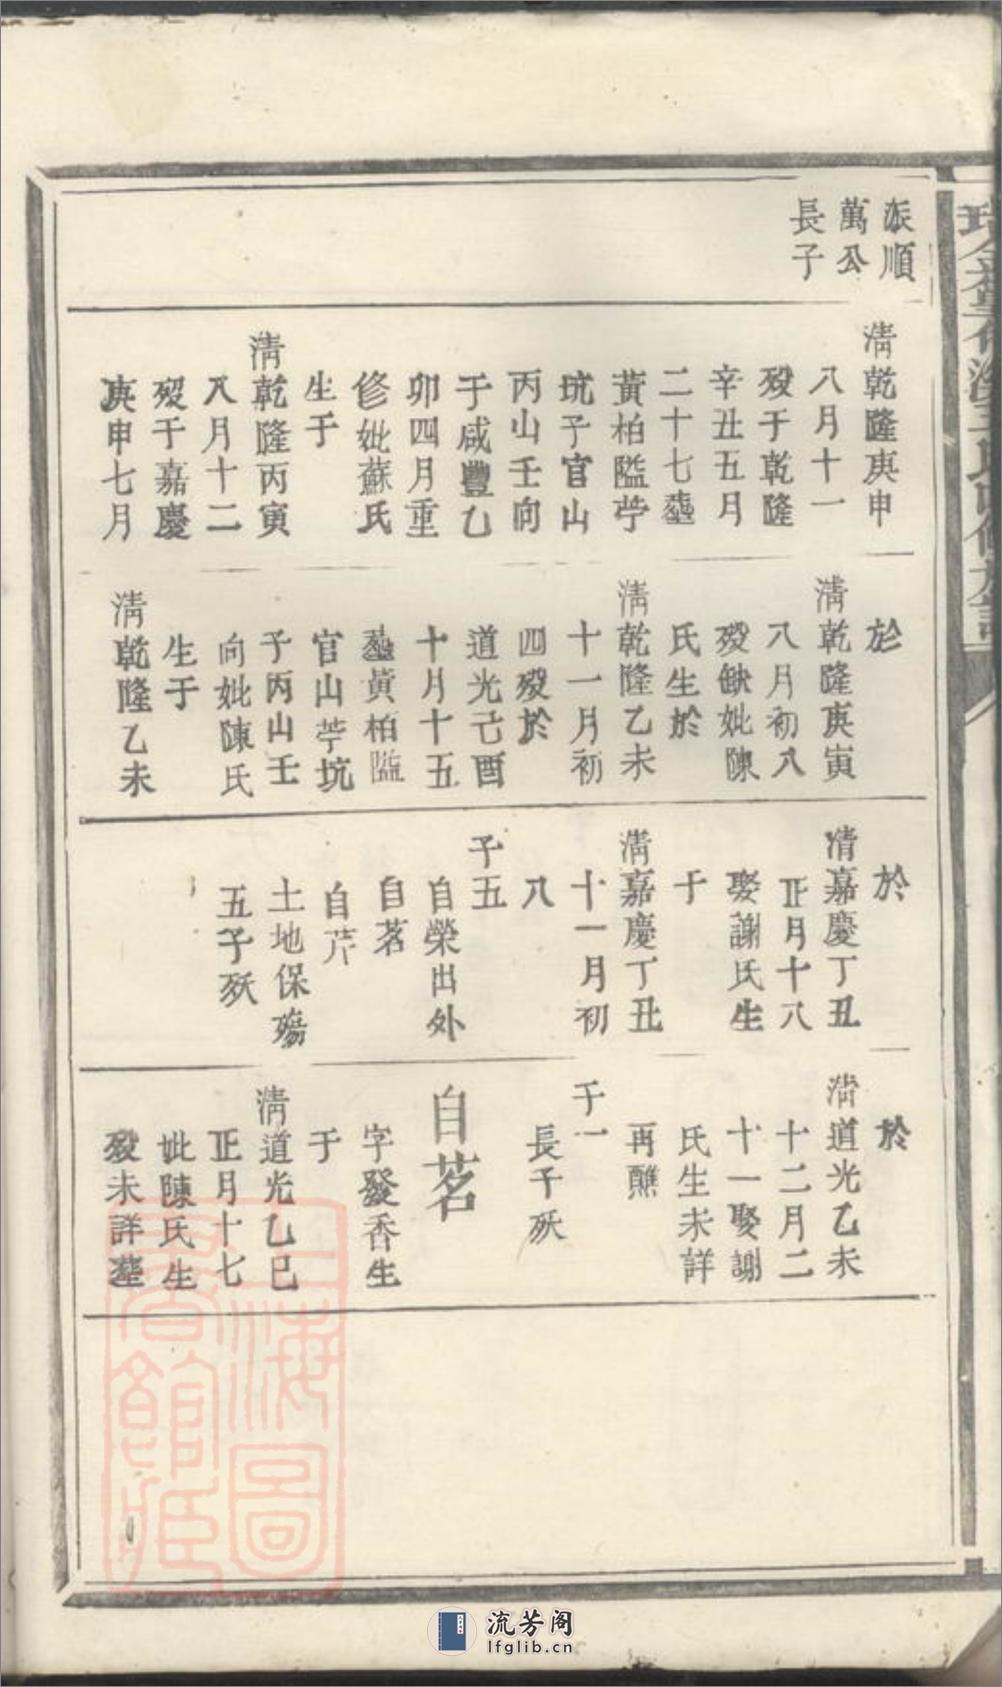 派順
萬公
長子
清乾隆庚申
八月十一
殁于乾隆
辛丑五月
二十七塟
黃柏隘苧
坑子官山
丙山壬向
于咸豐乙
卯四月重
修妣蘇氏
生于
清乾隆丙寅
八月十二
殁于嘉慶
庚申七月
於
清乾隆庚寅
八月初八
殁缺妣陳
氏生於
清乾隆乙未
十一月初
四殁於
道光己酉
十月十五
塟黃柏隘
官山苧坑
子丙山壬
向妣陳氏
生于
清乾隆乙未
於
清嘉慶丁丑
正月十八
娶謝氏生
于
清嘉慶丁丑
十一月初
八
子五
自榮出外
自茗
自芹
土地保殤
五子殀
於
清道光乙未
十二月二
十一娶謝
氏生未詳
再醮
子一
長千殀
自茗
字發香生
于
清道光乙巳
正月十七
妣陳氏生
殁未詳塟
上海圖
書館藏
流芳阁
lfglib.cn